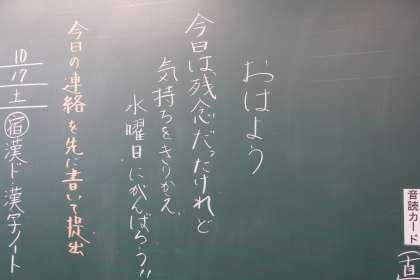 おはよう
今日は残念だったけれど
気持ちをきりかえ
水曜日にがんばろう!!
今日の連絡を先に書いて提出
10/17 土
宿 漢ド 漢字ノート
音読カード